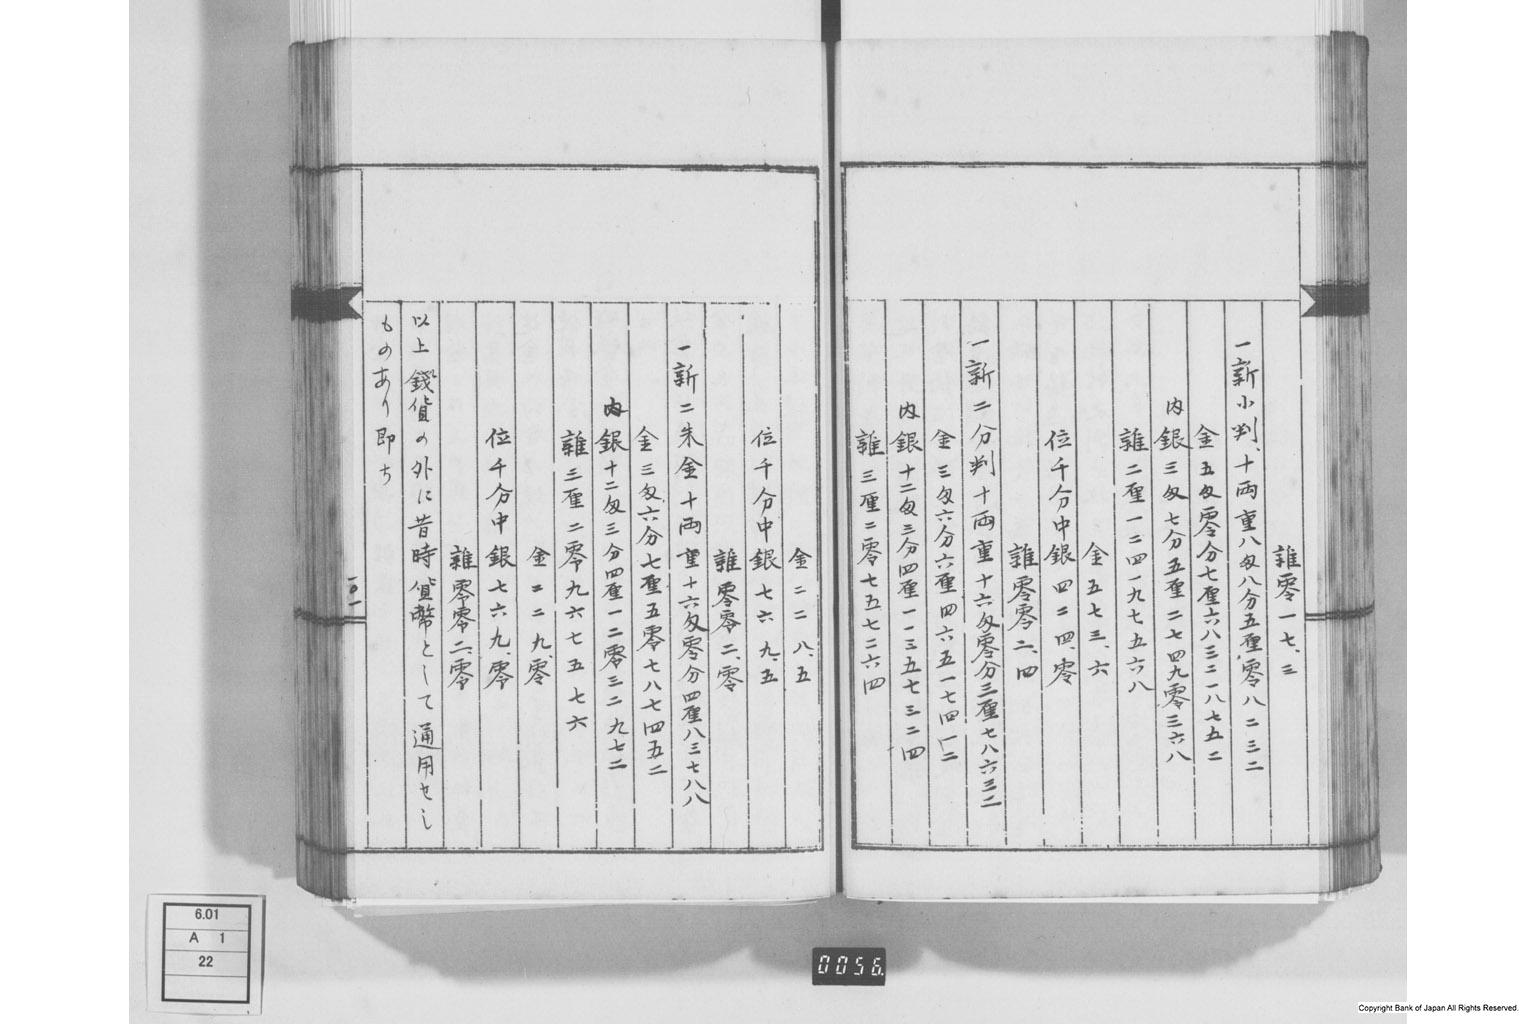 雑零一七、三
一新小判、十両重八匁八分五厘零八二三二
金五匁零分七厘六八三二一八七五二
内銀三匁七分五厘二七四九零三六八
雑二厘一二四一九七五六八
金五七三、六
位千分中銀四二四、零
雑零零二、四
一新二分判十両重十六匁零分三厘七八六三二
金三匁六分六厘四六五一七四一二
内銀十二匁三分四厘一一三五七三二四
雑三厘二零七五七二六四
金二二八、五
位千分中銀七六九、五
雑零零二、零
一新二朱金十両重十六匁零分四厘八三七八八
金三匁六分七厘五零七八七四五二
内銀十二匁三分四厘一二零三二九七二
雑三厘二零九六七五七六
金二二九、零
位千分中銀七六九、零
雑零零二、零
以上錢貨の外に昔時貨幣として通用せし
ものあり即ち
一〇一
6.01
A 1
22
0056.
Copyright Bank of Japan All Rights Reserved.